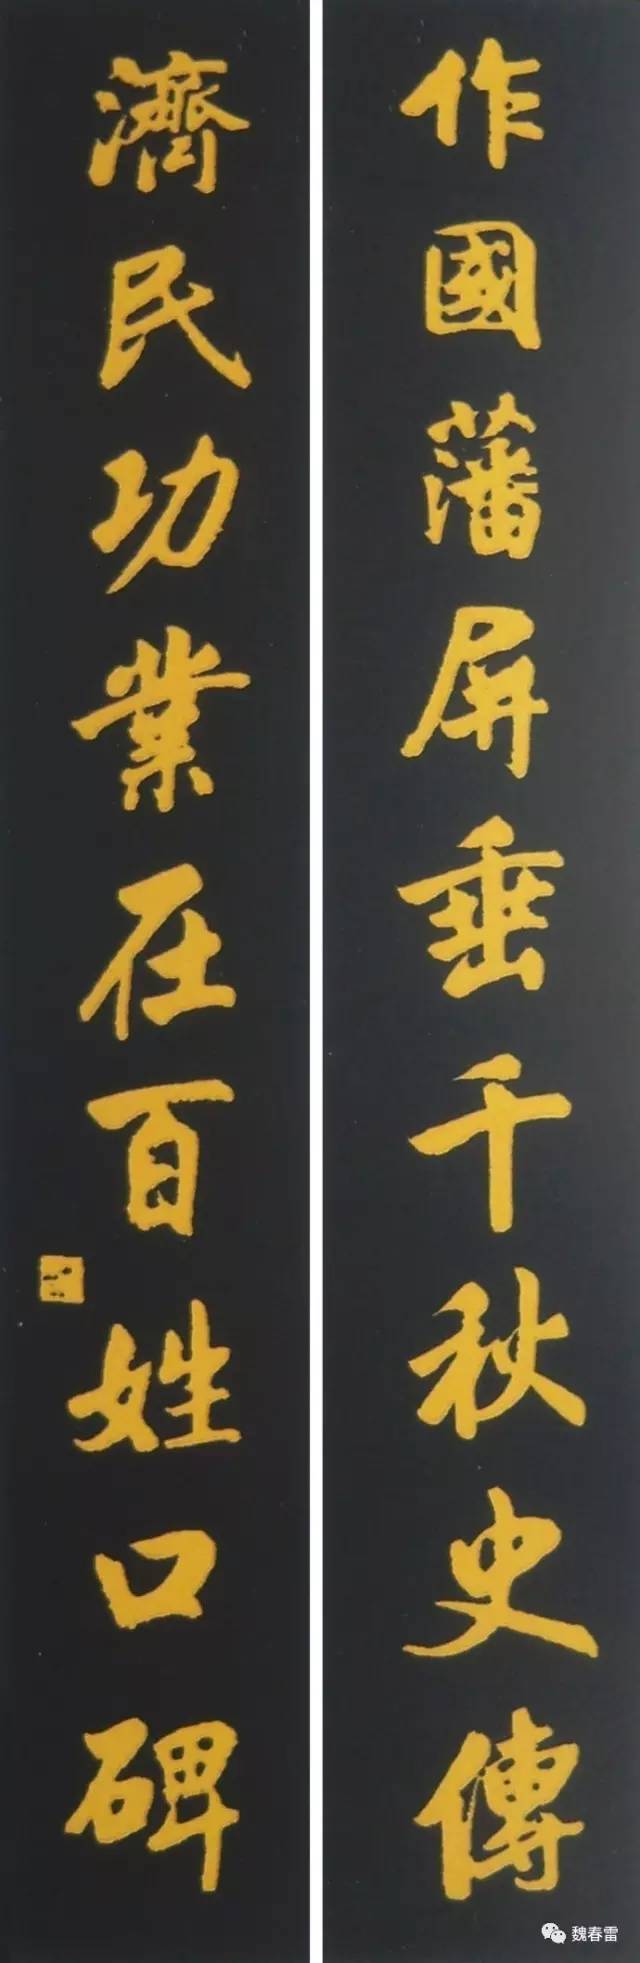 作國藩屏垂千秋史傳
濟民功業在百姓口碑
魏春雷